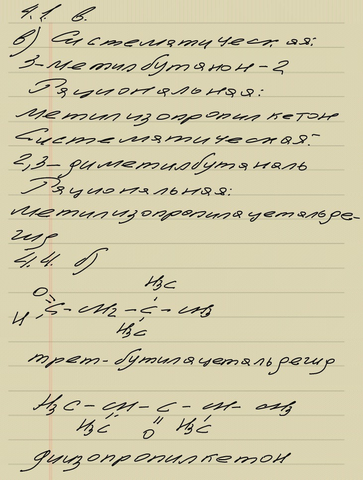 4.1. в.
в) Систематическая:
3-метилбутанон-2
Рациональная:
метилизопропилкетон
Систематическая:
2,3-диметилбутаналь
Рациональная:
метилизопропилацетальде-
гид
4.4. б)
H₃C
O
C - CH₂ - C - CH₃
H
H₃C
трет-бутилацетальдегид
H₃C - CH - C - CH - CH₃
H₃C O H₃C
диизопропилкетон